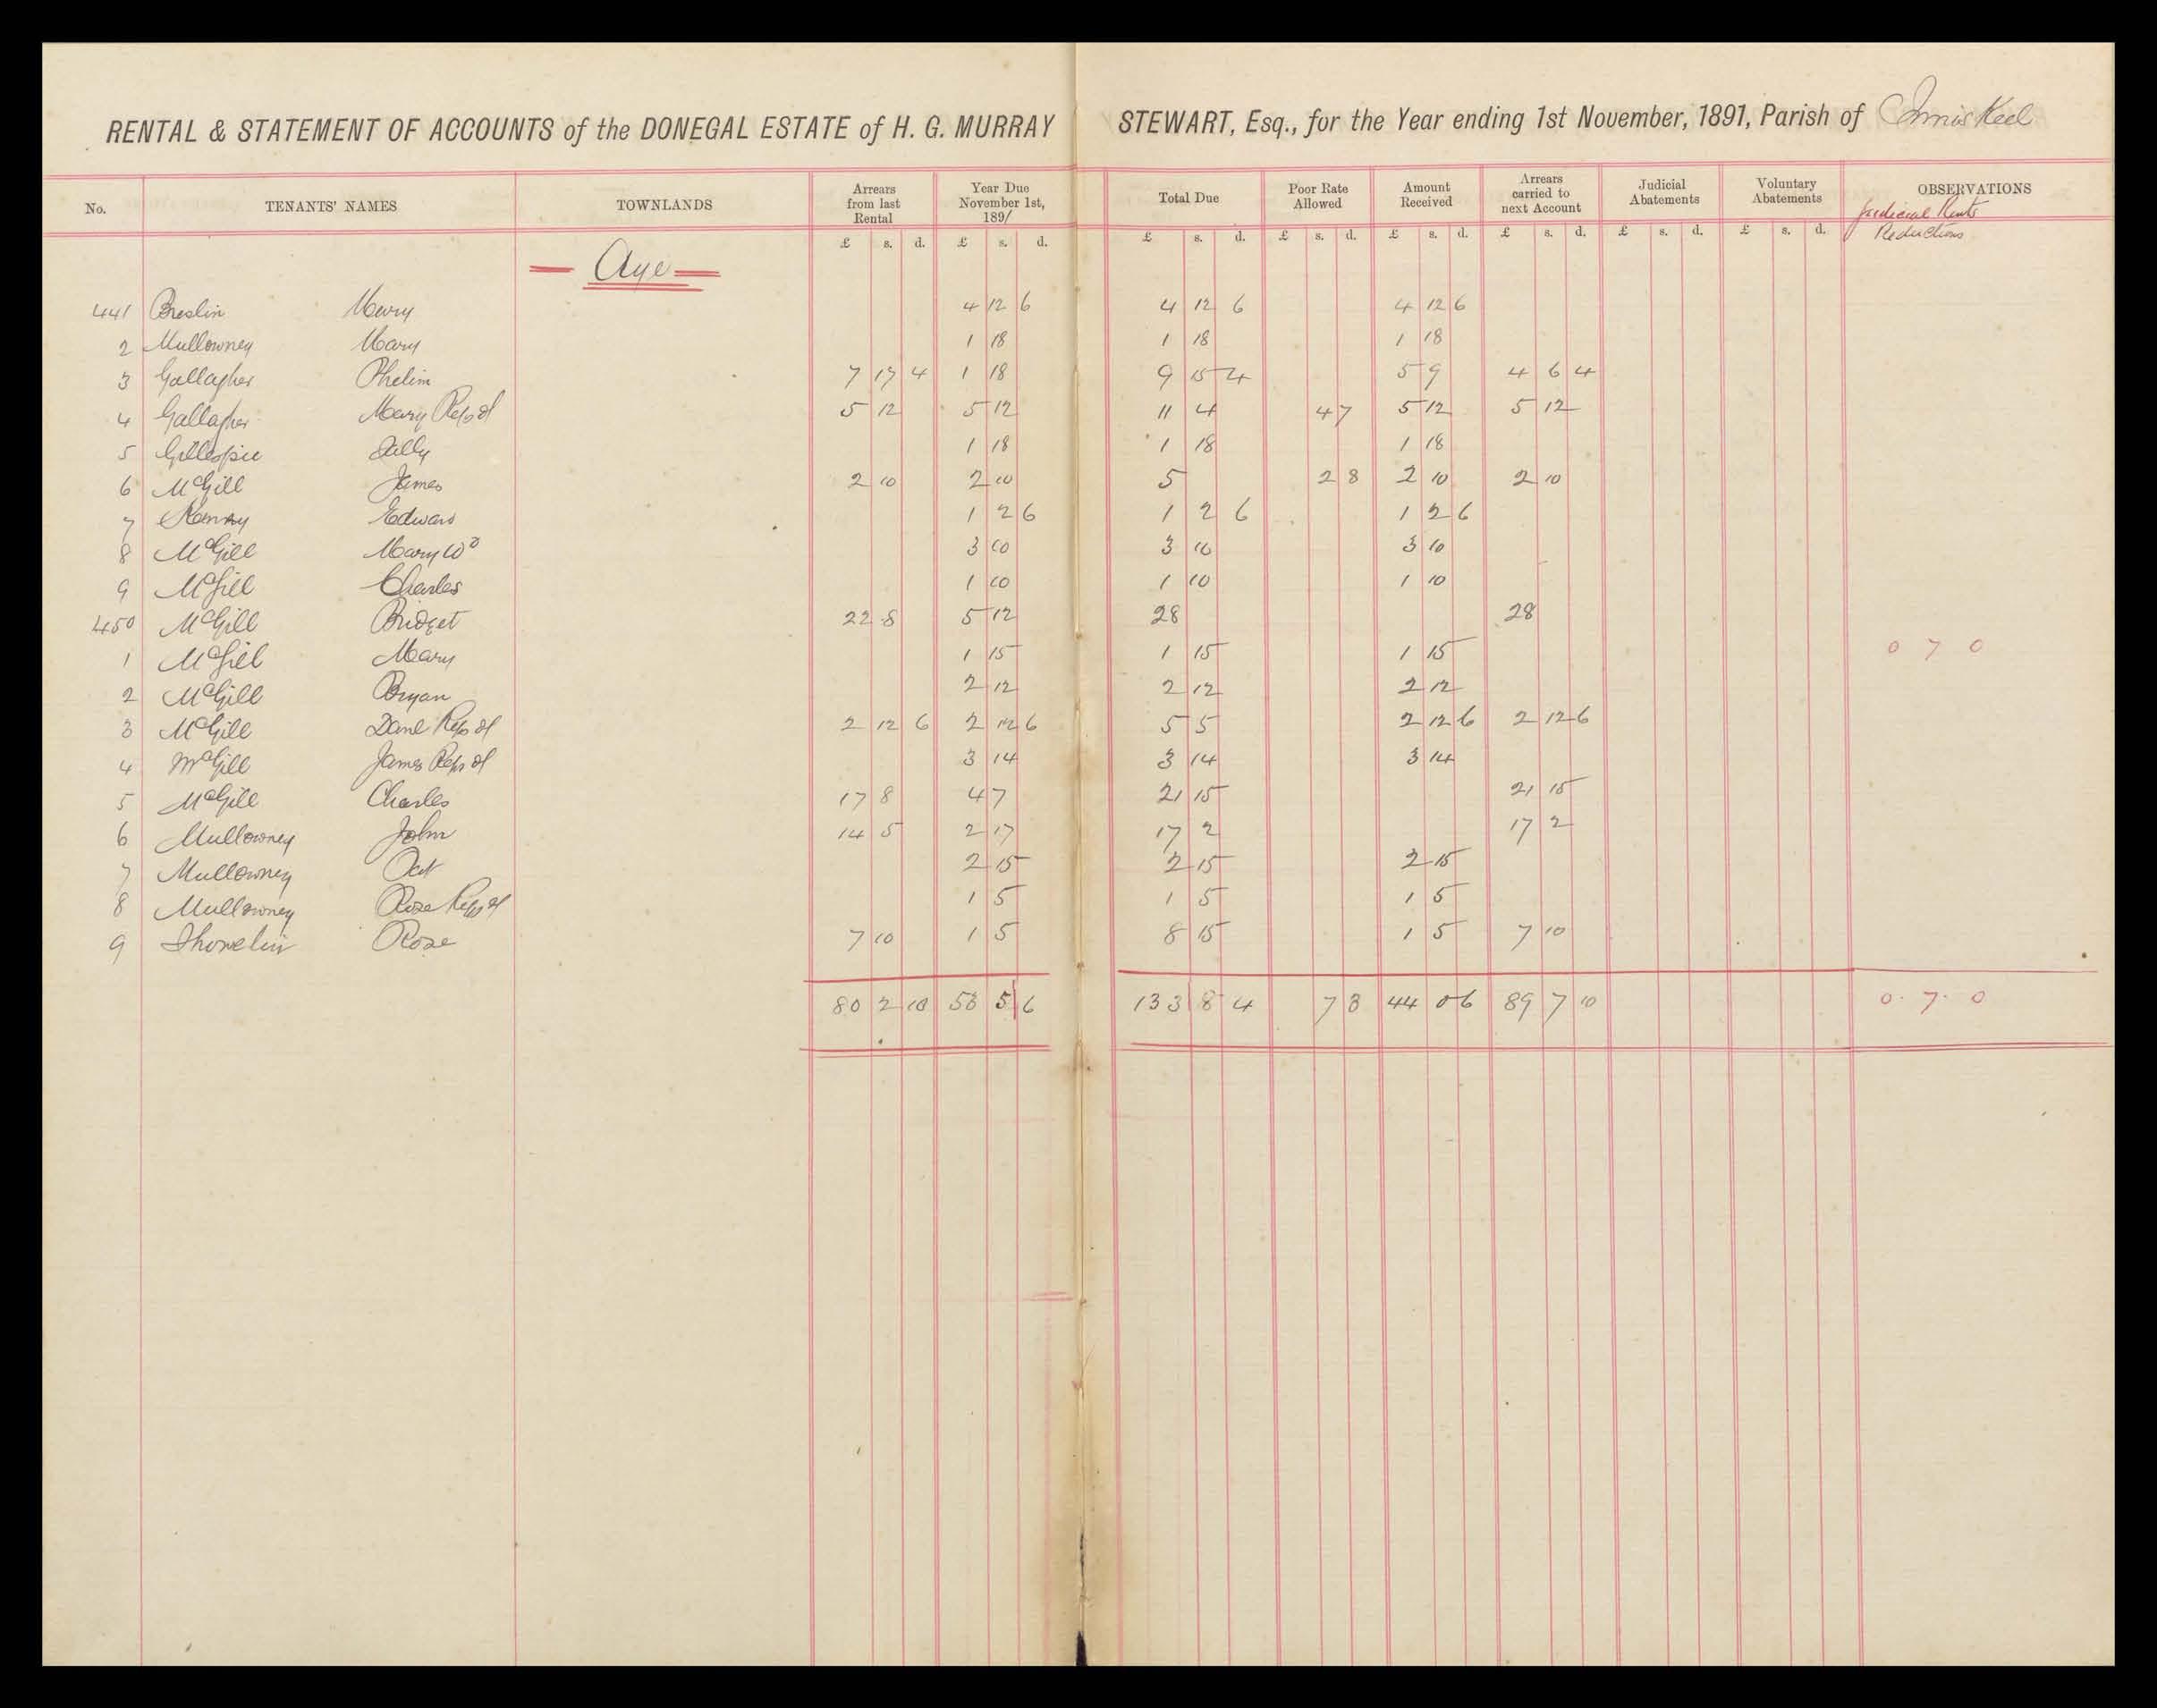 RENTAL & STATEMENT OF ACCOUNTS of the DONEGAL ESTATE of H. G. MURRAY STEWART, Esq., for the Year ending 1st November, 1891, Parish of Inniskeel
No. TENANTS' NAMES TOWNLANDS Arrears from last Rental Year Due November 1st, 1891 Total Due Poor Rate Allowed Amount Received Arrears carried to next Account Judicial Abatements Voluntary Abatements OBSERVATIONS
Judicial Rents Reductions
£ s. d. £ s. d. £ s. d. £ s. d. £ s. d. £ s. d. £ s. d. £ s. d.
Aye
441 Breslin Mary 4 12 6 4 12 6 4 12 6
2 Mullowney Mary 1 18 1 18 1 18
3 Gallagher Phelim 7 17 4 1 18 9 15 4 5 9 4 6 4
4 Gallagher Mary Reps of 5 12 5 12 11 4 4 7 5 12 5 12
5 Gillespie 1 18 1 18 1 18
6 McGill James 2 10 2 10 5 2 8 2 10 2 10
7 Edward 1 2 6 1 2 6 1 2 6
8 McGill Mary Wd 3 10 3 10 3 10
9 McGill Charles 1 10 1 10 1 10
450 McGill Bridget 22 8 5 12 28 28
1 McGill Mary 1 15 1 15 1 15 0 7 0
2 McGill Bryan 2 12 2 12 2 12
3 McGill Danl Reps of 2 12 6 2 12 6 5 5 2 12 6 2 12 6
4 McGill James Reps of 3 14 3 14 3 14
5 McGill Charles 17 8 4 7 21 15 21 15
6 Mullowney John 14 5 2 17 17 2 17 2
7 Mullowney Pat 2 15 2 15 2 15
8 Mullowney Rose Reps of 1 5 1 5 1 5
9 Rose 7 10 1 5 8 15 1 5 7 10
80 2 10 53 5 6 133 8 4 7 3 44 0 6 89 7 10 0 7 0